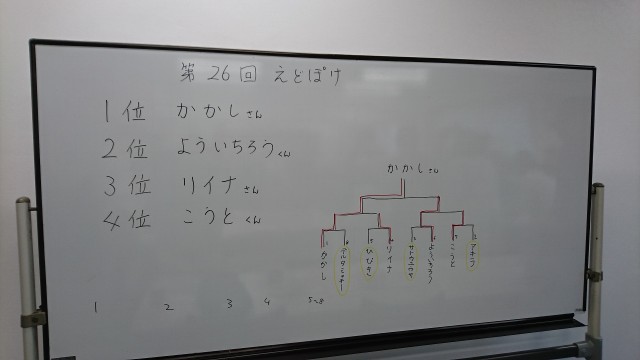 第26回 えどぽけ
1位 かかしさん
2位 よういちろうくん
3位 リイナさん
4位 こうとくん
かかしさん
かかし
ひびき
リイナ
よういちろう
こうと
アキラ
1 2 3 4 5~8